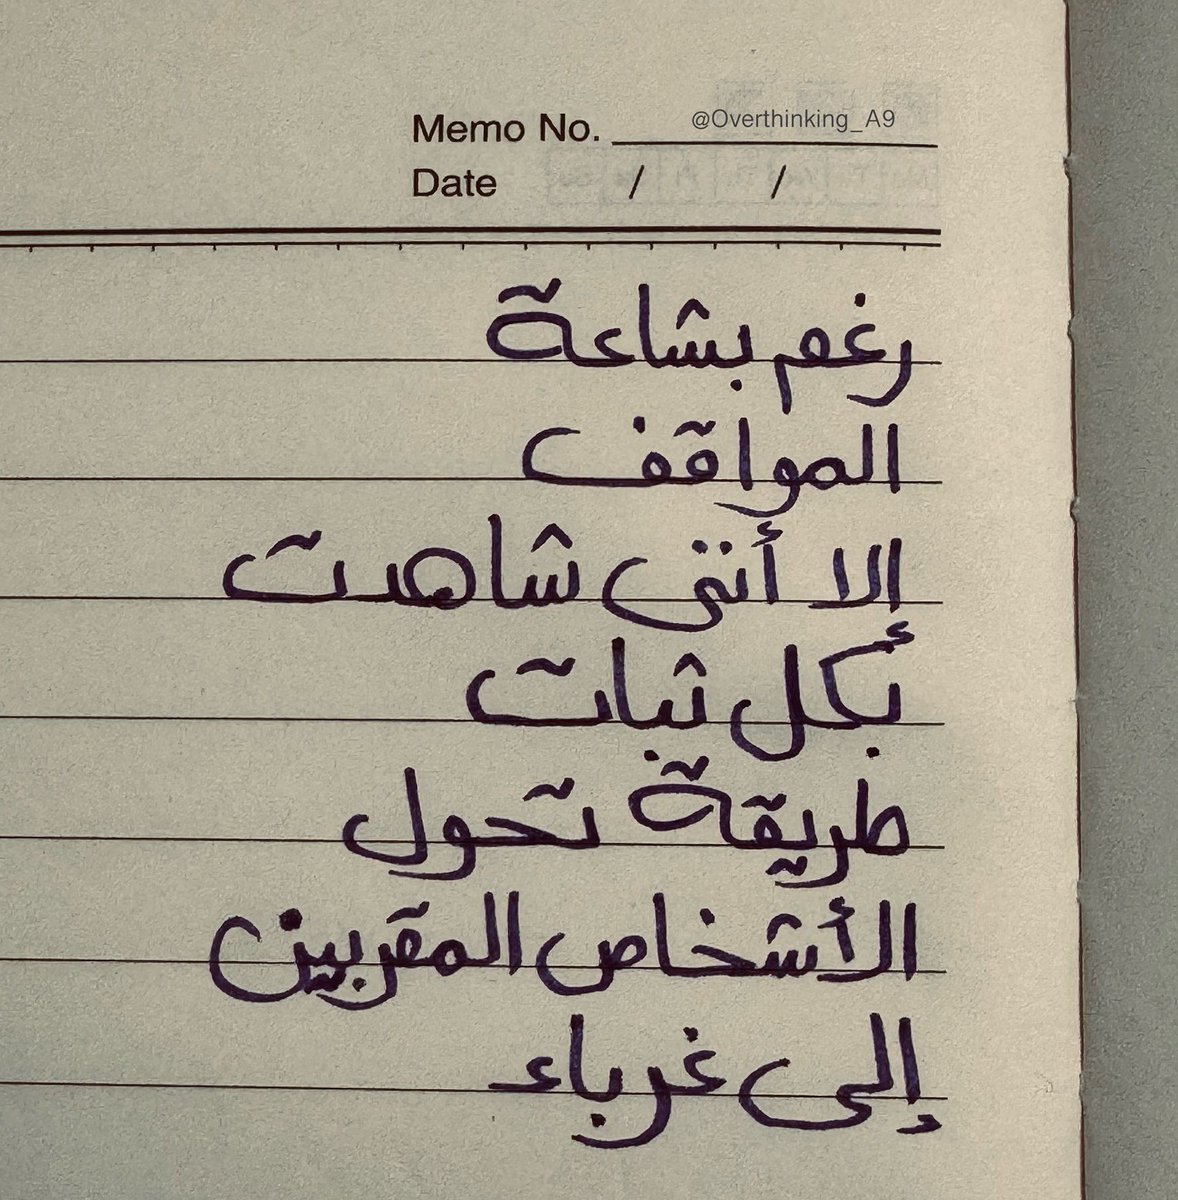 Memo No. @Overthinking_A9
Date / /
رغم بشاعة
المواقف
الا أنني شاهدت
بكل ثبات
طريقة تحول
الأشخاص المقربين
إلى غرباء